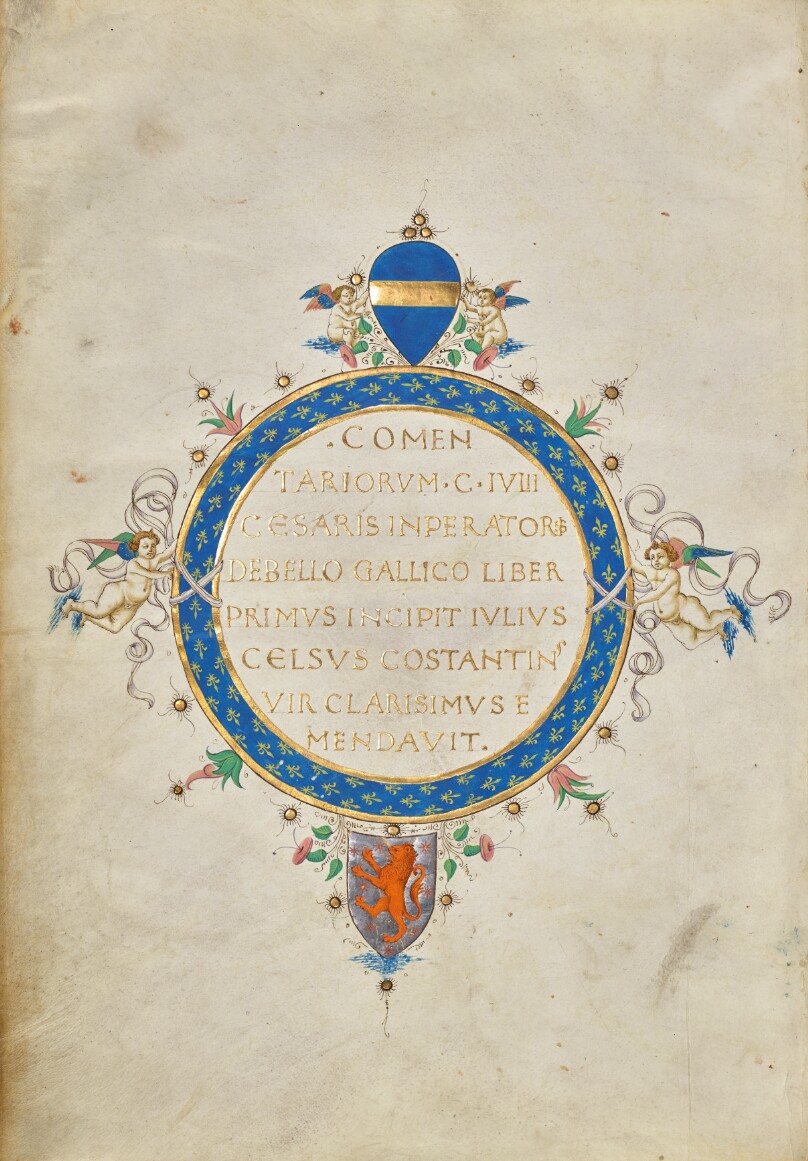 .COMEN
TARIORVM·C·IVLII
CESARIS INPERATORꝭ
DEBELLO GALLICO LIBER
PRIMVS INCIPIT IVLIVS
CELSVS COSTANTINˢ
VIR CLARISIMVS E
MENDAVIT.